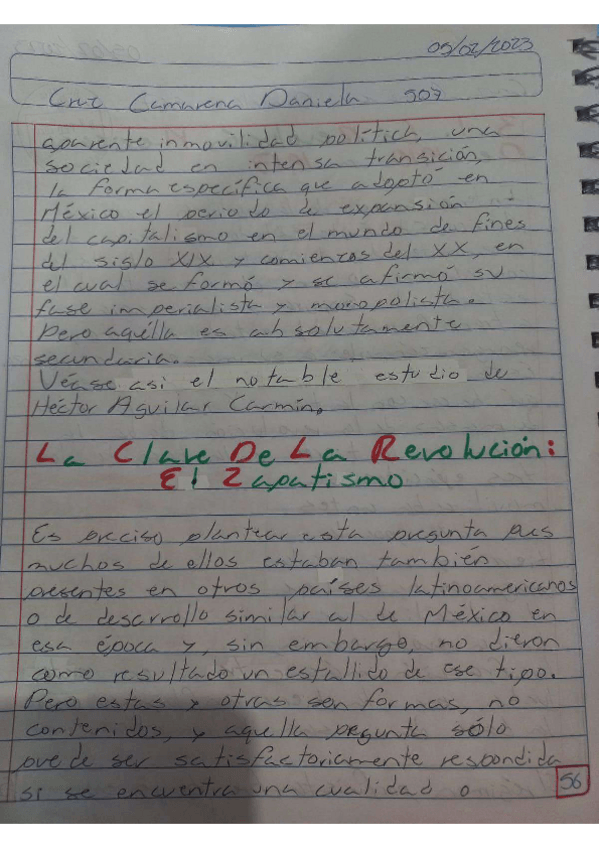 05/02/2023
Cruz Camarena Daniela 507
aparente inmovilidad política, una
sociedad en intensa transición,
la forma específica que adoptó en
México el periodo de expansión
del capitalismo en el mundo de fines
del siglo XIX y comienzos del XX, en
el cual se formó y se afirmó su
fase imperialista y monopolista.
Pero aquélla es absolutamente
secundaria.
Véase asi el notable estudio de
Héctor Aguilar Carmín.
La Clave De La Revolución:
El Zapatismo
Es preciso plantear esta pregunta pues
muchos de ellos estaban también
presentes en otros países latinoamericanos
o de desarrollo similar al de México en
esa época y, sin embargo, no dieron
como resultado un estallido de ese tipo.
Pero estas y otras son formas, no
contenidos, y aquella pregunta sólo
puede ser satisfactoriamente respondida
si se encuentra una cualidad o
56